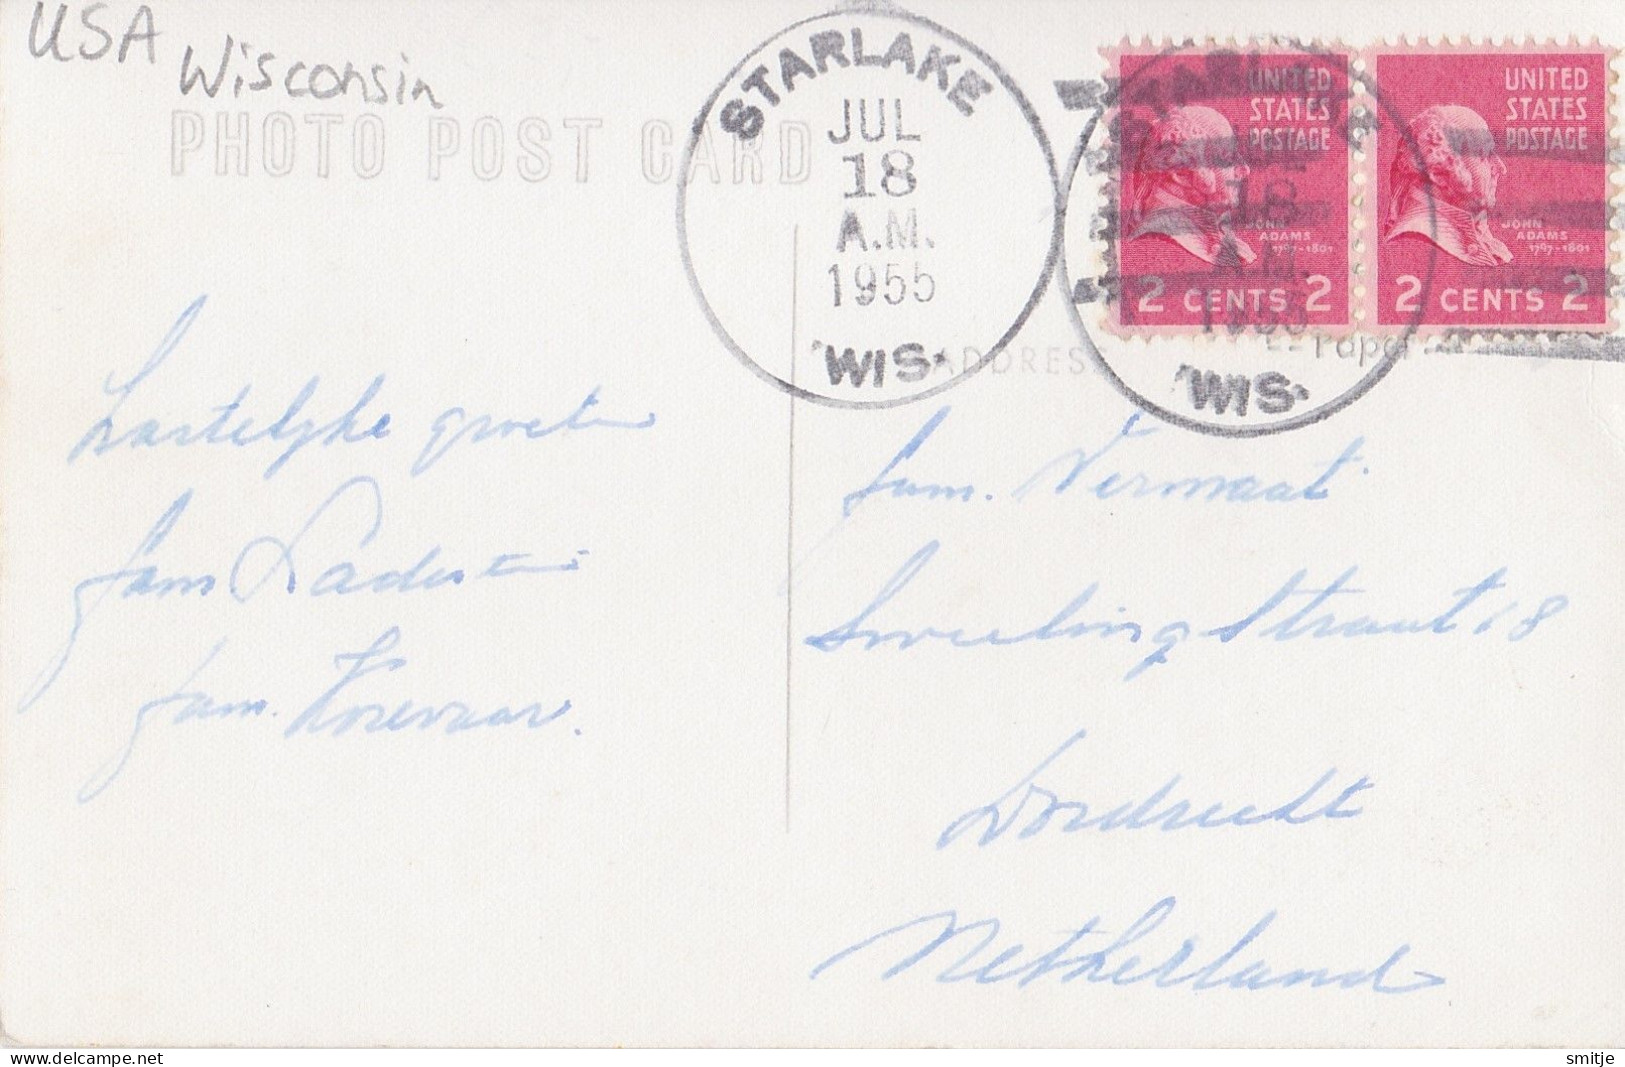 USA
Wisconsin
PHOTO POST CARD
STARLAKE
JUL
18
A.M.
1955
WIS.
STARLAKE
JUL
18
A.M.
1955
WIS.
UNITED
STATES
POSTAGE
JOHN
ADAMS
1797-1801
2 CENTS 2
UNITED
STATES
POSTAGE
JOHN
ADAMS
1797-1801
2 CENTS 2
ADDRESS
Paper
Hartelijke groeten
fam
fam. Korevaar.
fam. Vermaat
Sweelingstraat 18
Dordrecht
Netherland
smitje